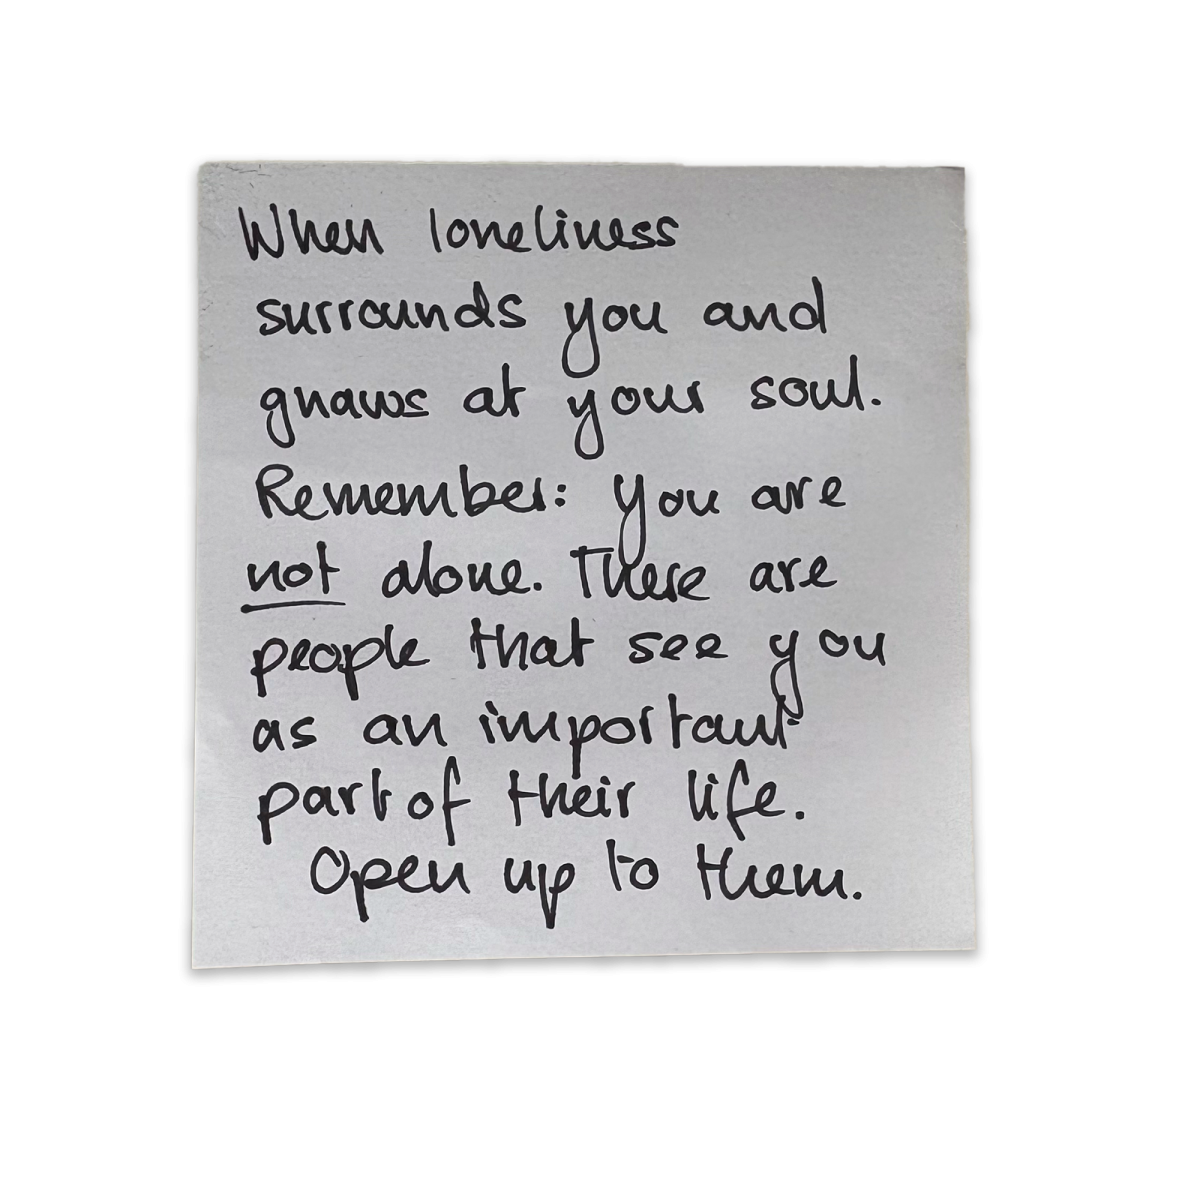 When loneliness
surrounds you and
gnaws at your soul.
Remember: you are
not alone. There are
people that see you
as an important
part of their life.
Open up to them.